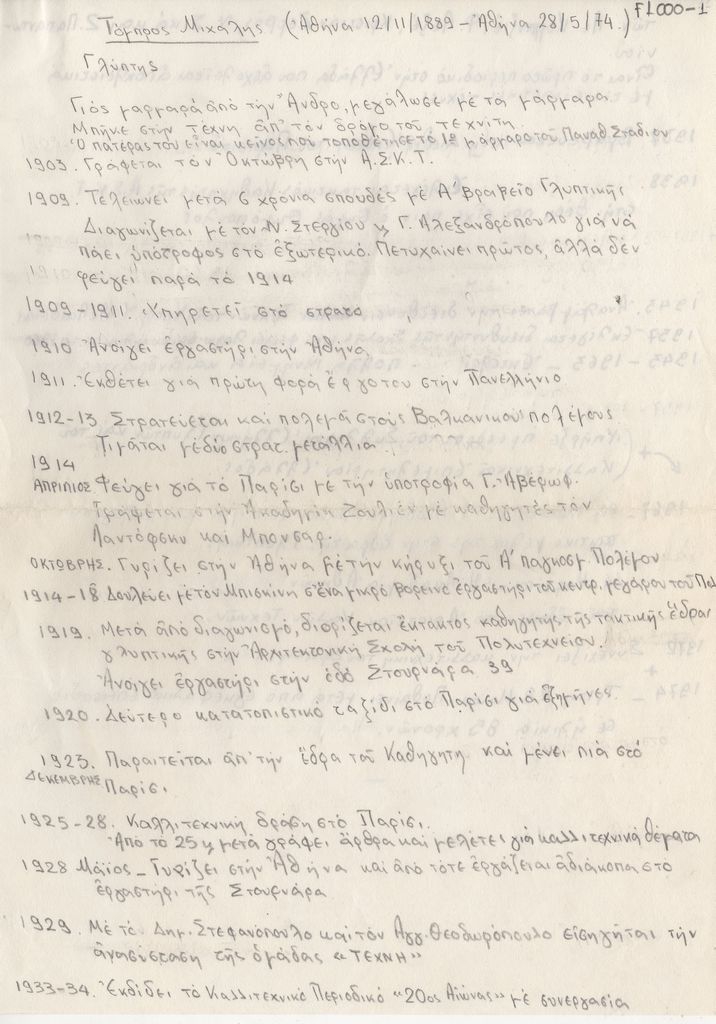 F1000-1
Τόμπρος Μιχάλης (Ἀθήνα 12/11/1889 - Ἀθήνα 28/5/74.)
Γλύπτης
Γιός μαρμαρά ἀπό τήν Ἄνδρο, μεγάλωσε μέ τά μάρμαρα
Μπῆκε στήν τέχνη ἀπ' τόν δρόμο τοῦ τεχνίτη.
Ὁ πατέρας του εἶναι κεῖνος πού τοποθέτησε τό 1ο μάρμαρο τοῦ Παναθ. Σταδίου
1903. Γράφεται τόν Ὀκτώβρη στήν Α.Σ.Κ.Τ.
1909. Τελειώνει μετά 6 χρόνια σπουδές μέ Α' βραβεῖο Γλυπτικῆς
Διαγωνίζεται μέ τόν Ν. Στεργίου κ Γ. Ἀλεξανδρόπουλο γιά νά
πάει ὑπότροφος στό ἐξωτερικό. Πετυχαίνει πρῶτος, ἀλλά δέν
φεύγει παρά τό 1914
1909-1911. Ὑπηρετεῖ στό στρατό
1910 Ἀνοίγει ἐργαστήρι στήν Ἀθήνα.
1911. Ἐκθέτει γιά πρώτη φορά ἔργο του στήν Πανελλήνιο
1912-13. Στρατεύεται καί πολεμᾶ στούς Βαλκανικούς πολέμους
Τιμᾶται μέ δύο στρατ. μετάλλια.
1914
ΑΠΡΙΛΙΟΣ Φεύγει γιά τό Παρίσι μέ τήν ὑποτροφία Γ. Ἀβέρωφ.
Γράφεται στήν Ἀκαδημία Ζουλιέν μέ καθηγητές τόν
Λαντόφσκυ καί Μπουσάρ.
ΟΚΤΩΒΡΗΣ. Γυρίζει στήν Ἀθήνα μέ τήν κήρυξι τοῦ Α' παγκοσμ. Πολέμου
1914-18 Δουλεύει μέ τόν Μπισκίνη σ' ἕνα μικρό βορεινό ἐργαστήρι τοῦ κεντρ. μεγάρου τοῦ Πολ
1919. Μετά ἀπό διαγωνισμό, διορίζεται ἔκτακτος καθηγητής τῆς τακτικῆς ἕδρας
γλυπτικῆς στήν Ἀρχιτεκτονική Σχολή τοῦ Πολυτεχνείου.
Ἀνοίγει ἐργαστήρι στήν ὁδό Στουρνάρα 39
1920. Δεύτερο κατατοπιστικό ταξίδι στό Παρίσι γιά ἑξαμῆνες.
1923. Παραιτεῖται ἀπ' τήν ἕδρα τοῦ Καθηγητῆ καί μένει πιά στό
ΔΕΚΕΜΒΡΗΣ Παρίσι.
1925-28. Καλλιτεχνική δράση στό Παρίσι.
Ἀπό τό 25 κ μετά γράφει ἄρθρα καί μελέτες γιά καλλιτεχνικά θέματα
1928 Μάϊος - Γυρίζει στήν Ἀθήνα καί ἀπό τότε ἐργάζεται ἀδιάκοπα στό
ἐργαστήρι τῆς Στουρνάρα
1929. Μέ τό Δημ. Στεφανόπουλο καί τόν Ἀγγ. Θεοδωρόπουλο εἰσηγῆται τήν
ἀνασύσταση τῆς ὁμάδας «ΤΕΧΝΗ»
1933-34. Ἐκδίδει τό Καλλιτεχνικό Περιοδικό «20ος Αἰώνας» μέ συνεργασία